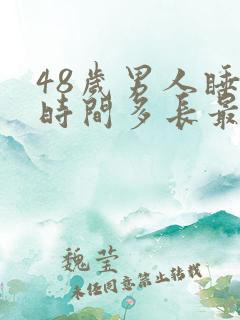 48歲男人睡
時間多長最
魏莹
未经同意禁止转载